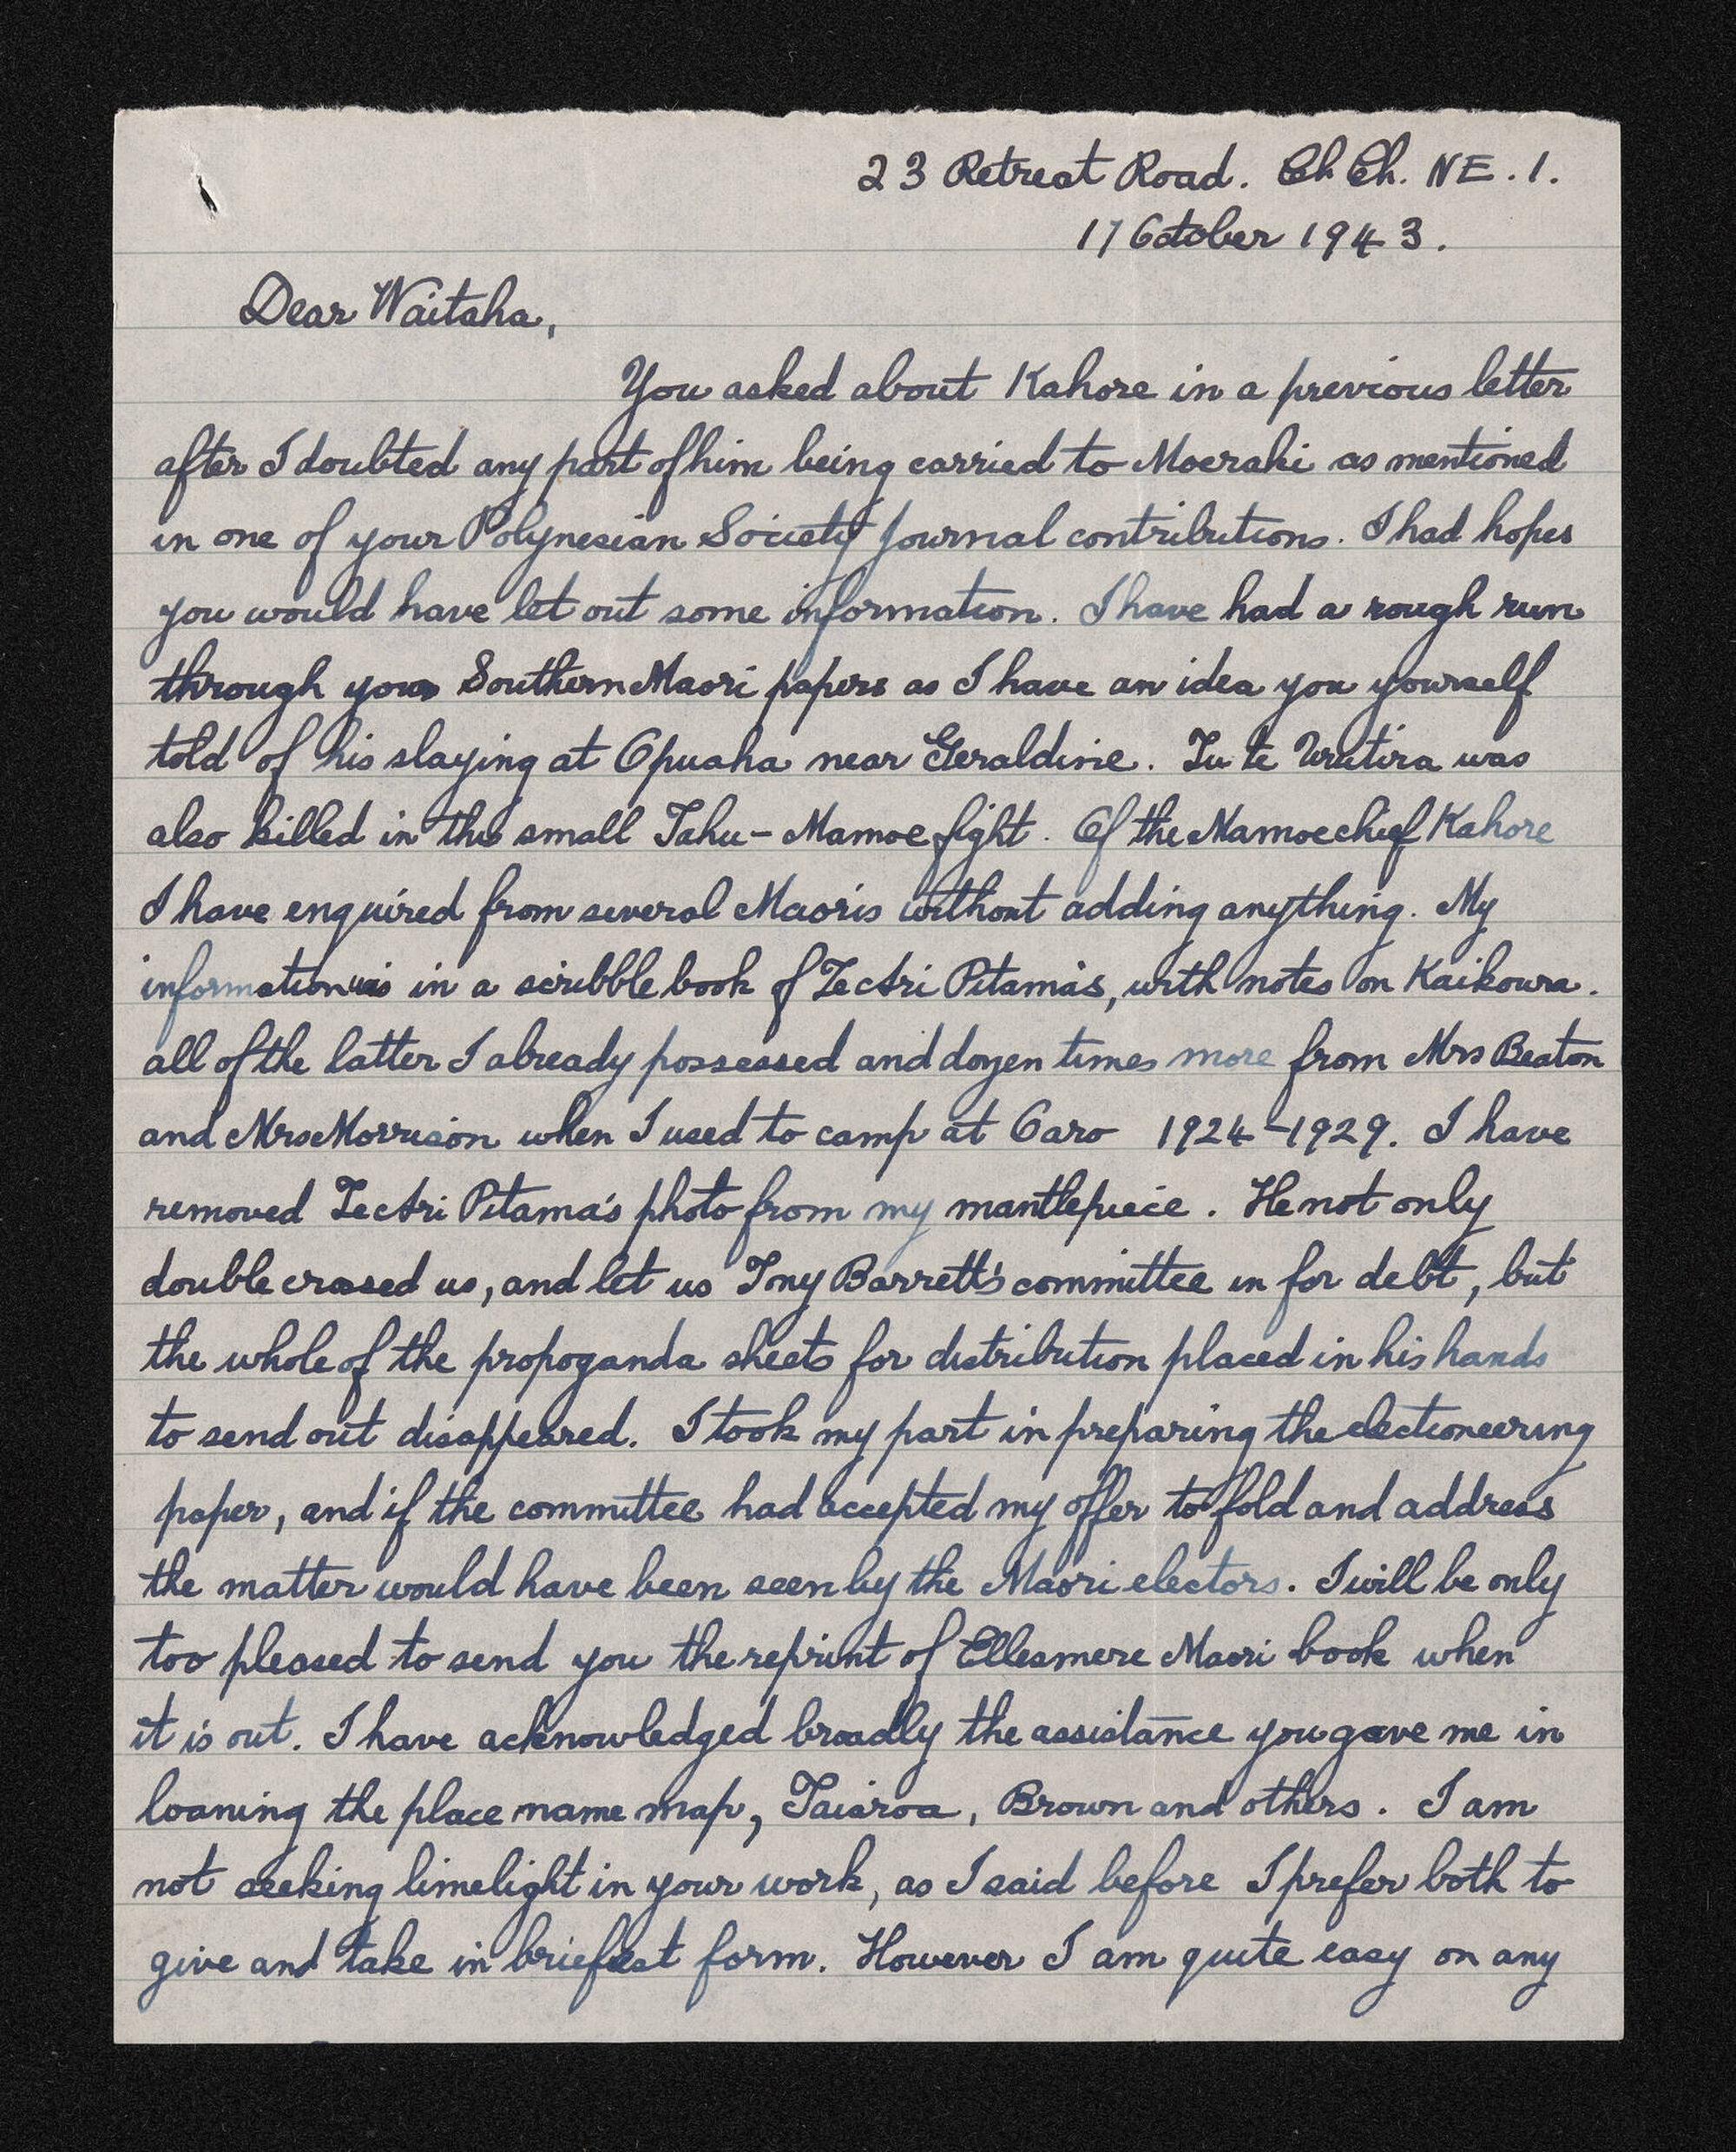 23 Retreat Road. Ch Ch. NE. 1.
17 October 1943.
Dear Waitaha,
You asked about Kahore in a previous letter
after I doubted any part of him being carried to Moeraki as mentioned
in one of your Polynesian Society Journal contributions. I had hopes
you would have let out some information. I have had a rough run
through your Southern Maori papers as I have an idea you yourself
told of his slaying at Opuaha near Geraldine. Tu te Urutira was
also killed in this small Tahu-Mamoe fight. Of the Mamoe chief Kahore
I have enquired from several Maoris without adding anything. My
information was in a scribble book of Te Ari Pitama's, with notes on Kaikoura.
all of the latter I already possessed and dozen times more from Mrs Beaton
and Mrs Morrison when I used to camp at Oaro 1924-1929. I have
removed Te Ari Pitama's photo from my mantlepiece. He not only
double crossed us, and let us Tiny Barrett's committee in for debt, but
the whole of the propoganda sheets for distribution placed in his hands
to send out disappeared. I took my part in preparing the electioneering
paper, and if the committee had accepted my offer to fold and address
the matter would have been seen by the Maori electors. I will be only
too pleased to send you the reprint of Ellesmere Maori book when
it is out. I have acknowledged broadly the assistance you gave me in
loaning the place name map, Taiaroa, Brown and others. I am
not seeking limelight in your work, as I said before I prefer both to
give and take in briefest form. However I am quite easy on any